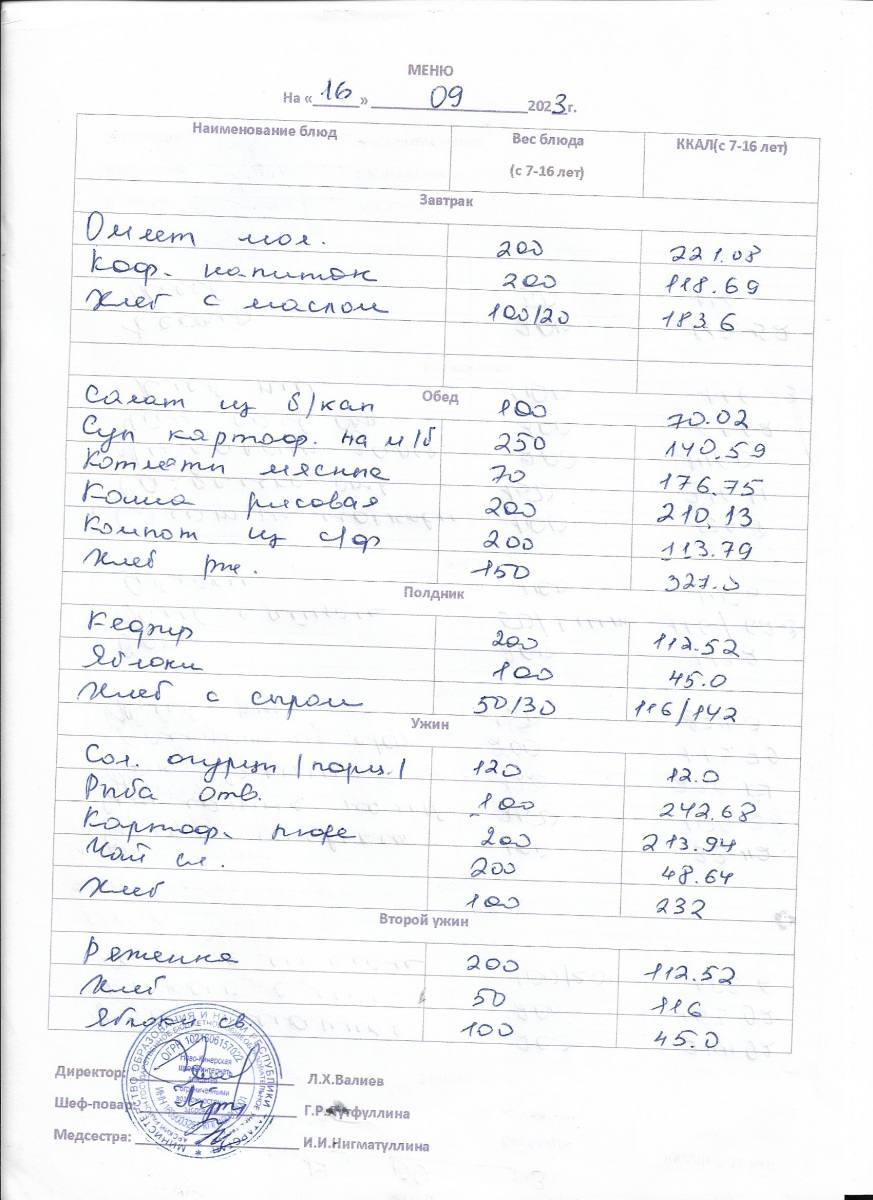 МЕНЮ
На «16» 09 2023г.
Наименование блюд Вес блюда (с 7-16 лет) ККАЛ(с 7-16 лет)
Завтрак
Омлет мол. 200 221.08
Коф. напиток 200 118.69
Хлеб с маслом 100/20 183.6
Обед
Салат из б/кап 100 70.02
Суп картоф. на м/б 250 140.59
Котлеты мясные 70 176.75
Каша рисовая 200 210,13
Компот из с/ф 200 113.79
Хлеб рж. 150 327.0
Полдник
Кефир 200 112.52
Яблоки 100 45.0
Хлеб с сыром 50/30 116/142
Ужин
Сол. огурцы /порц./ 120 12.0
Рыба отв. 100 242.68
Картоф. пюре 200 213.94
Чай сл. 200 48.64
Хлеб 100 232
Второй ужин
Ряженка 200 112.52
Хлеб 50 116
Яблоки св. 100 45.0
Директор: Л.Х.Валиев
Шеф-повар: Г.Р.
Медсестра: И.И.Нигматуллина
МИНИСТЕРСТВО ОБРАЗОВАНИЯ И НАУКИ РЕСПУБЛИКИ ТАТАРСТАН
ОГРН 1021606157022
Ново-Кинерская